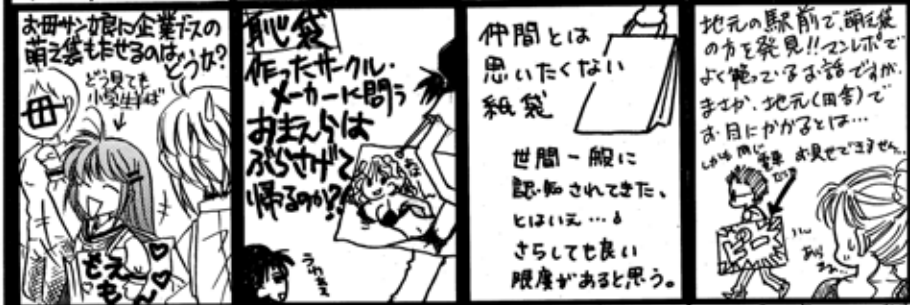 お母サン娘に企業ブースの
萌え袋もたせるのは
どうかな?
どう見ても
小学生半ば
母
もえ
もん
恥袋
作ったサークル・
メーカーに問う
おまえらは
ぶらさげて
帰るのか?
うわぁ
仲間とは
思いたくない
紙袋
世間一般に
認知されてきた、
とはいえ…。
さらしても良い
限度があると思う。
地元の駅前で、萌え袋
の方を発見!!マンレポで
よく載っているお話ですが、
まさか、地元(田舎)で
お目にかかるとは…
しかも同じ
電車
お見せできません…
ピー
あらまぁ